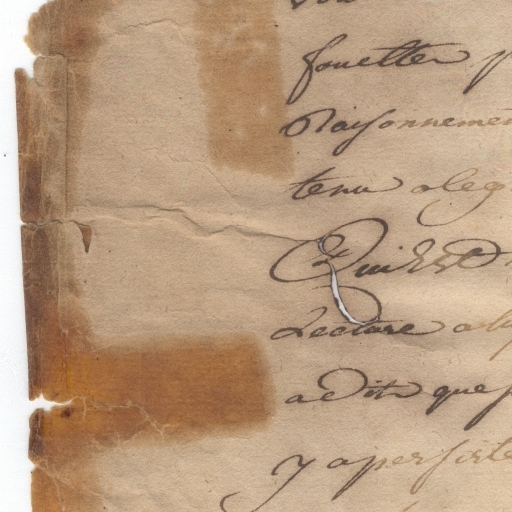 fouetter
Raisonnemen
tenu aleg
Qui Est
Lecture a
a dit que
y a persiste